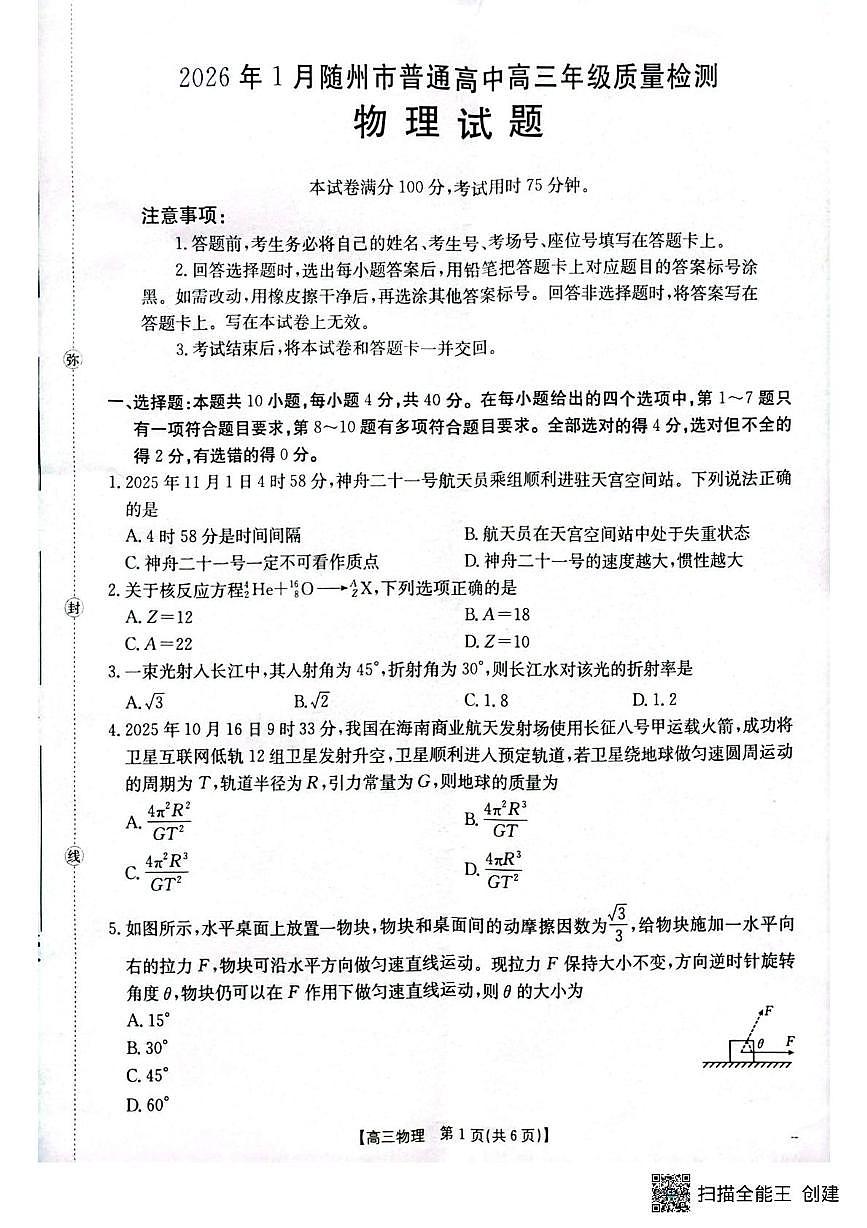 2026 年 1 月随州市普通高中高三年级质量检测
物 理 试 题
本试卷满分 100 分,考试用时 75 分钟。
注意事项:
1. 答题前,考生务必将自己的姓名、考生号、考场号、座位号填写在答题卡上。
2. 回答选择题时,选出每小题答案后,用铅笔把答题卡上对应题目的答案标号涂
黑。如需改动,用橡皮擦干净后,再选涂其他答案标号。回答非选择题时,将答案写在
答题卡上。写在本试卷上无效。
3. 考试结束后,将本试卷和答题卡一并交回。
弥
封
线
一、选择题:本题共 10 小题,每小题 4 分,共 40 分。在每小题给出的四个选项中,第 1~7 题只
有一项符合题目要求,第 8~10 题有多项符合题目要求。全部选对的得 4 分,选对但不全的
得 2 分,有选错的得 0 分。
1. 2025 年 11 月 1 日 4 时 58 分,神舟二十一号航天员乘组顺利进驻天宫空间站。下列说法正确
的是
A. 4 时 58 分是时间间隔 B. 航天员在天宫空间站中处于失重状态
C. 神舟二十一号一定不可看作质点 D. 神舟二十一号的速度越大,惯性越大
2. 关于核反应方程⁴₂He+¹⁶₈O⟶ᴬ_ZX,下列选项正确的是
A. Z=12 B. A=18
C. A=22 D. Z=10
3. 一束光射入长江中,其入射角为 45°,折射角为 30°,则长江水对该光的折射率是
A. √3 B. √2 C. 1.8 D. 1.2
4. 2025 年 10 月 16 日 9 时 33 分,我国在海南商业航天发射场使用长征八号甲运载火箭,成功将
卫星互联网低轨 12 组卫星发射升空,卫星顺利进入预定轨道,若卫星绕地球做匀速圆周运动
的周期为 T,轨道半径为 R,引力常量为 G,则地球的质量为
A. 4π²R²/GT² B. 4π²R³/GT
C. 4π²R³/GT² D. 4πR³/GT²
5. 如图所示,水平桌面上放置一物块,物块和桌面间的动摩擦因数为√3/3,给物块施加一水平向
右的拉力 F,物块可沿水平方向做匀速直线运动。现拉力 F 保持大小不变,方向逆时针旋转
角度 θ,物块仍可以在 F 作用下做匀速直线运动,则 θ 的大小为
A. 15°
B. 30°
C. 45°
D. 60°
F
θ F
【高三物理 第 1 页(共 6 页)】
扫描全能王 创建